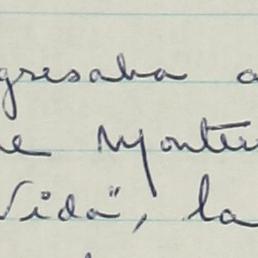 gresaba a
ne Monte
Vida", la